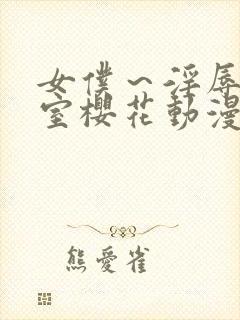 女僕～淫辱
室櫻花動漫
熊愛雀